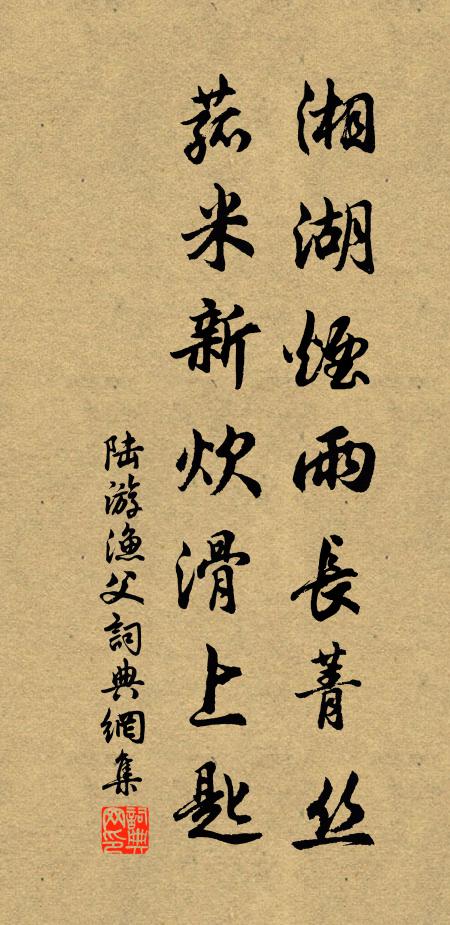 湘湖煙雨長菁丝
菰米新炊滑上匙
陆游漁父詞典網集
詞典网印